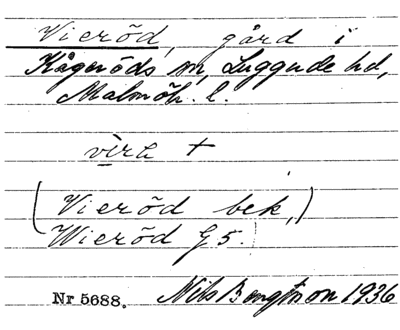 Vieröd, gård i
Kågeröds sn, Luggude hd,
Malmöh. l.
vira +
(Vieröd bek,)
Wieröd G5.
Nr 5688. Nils Bengtsson 1936